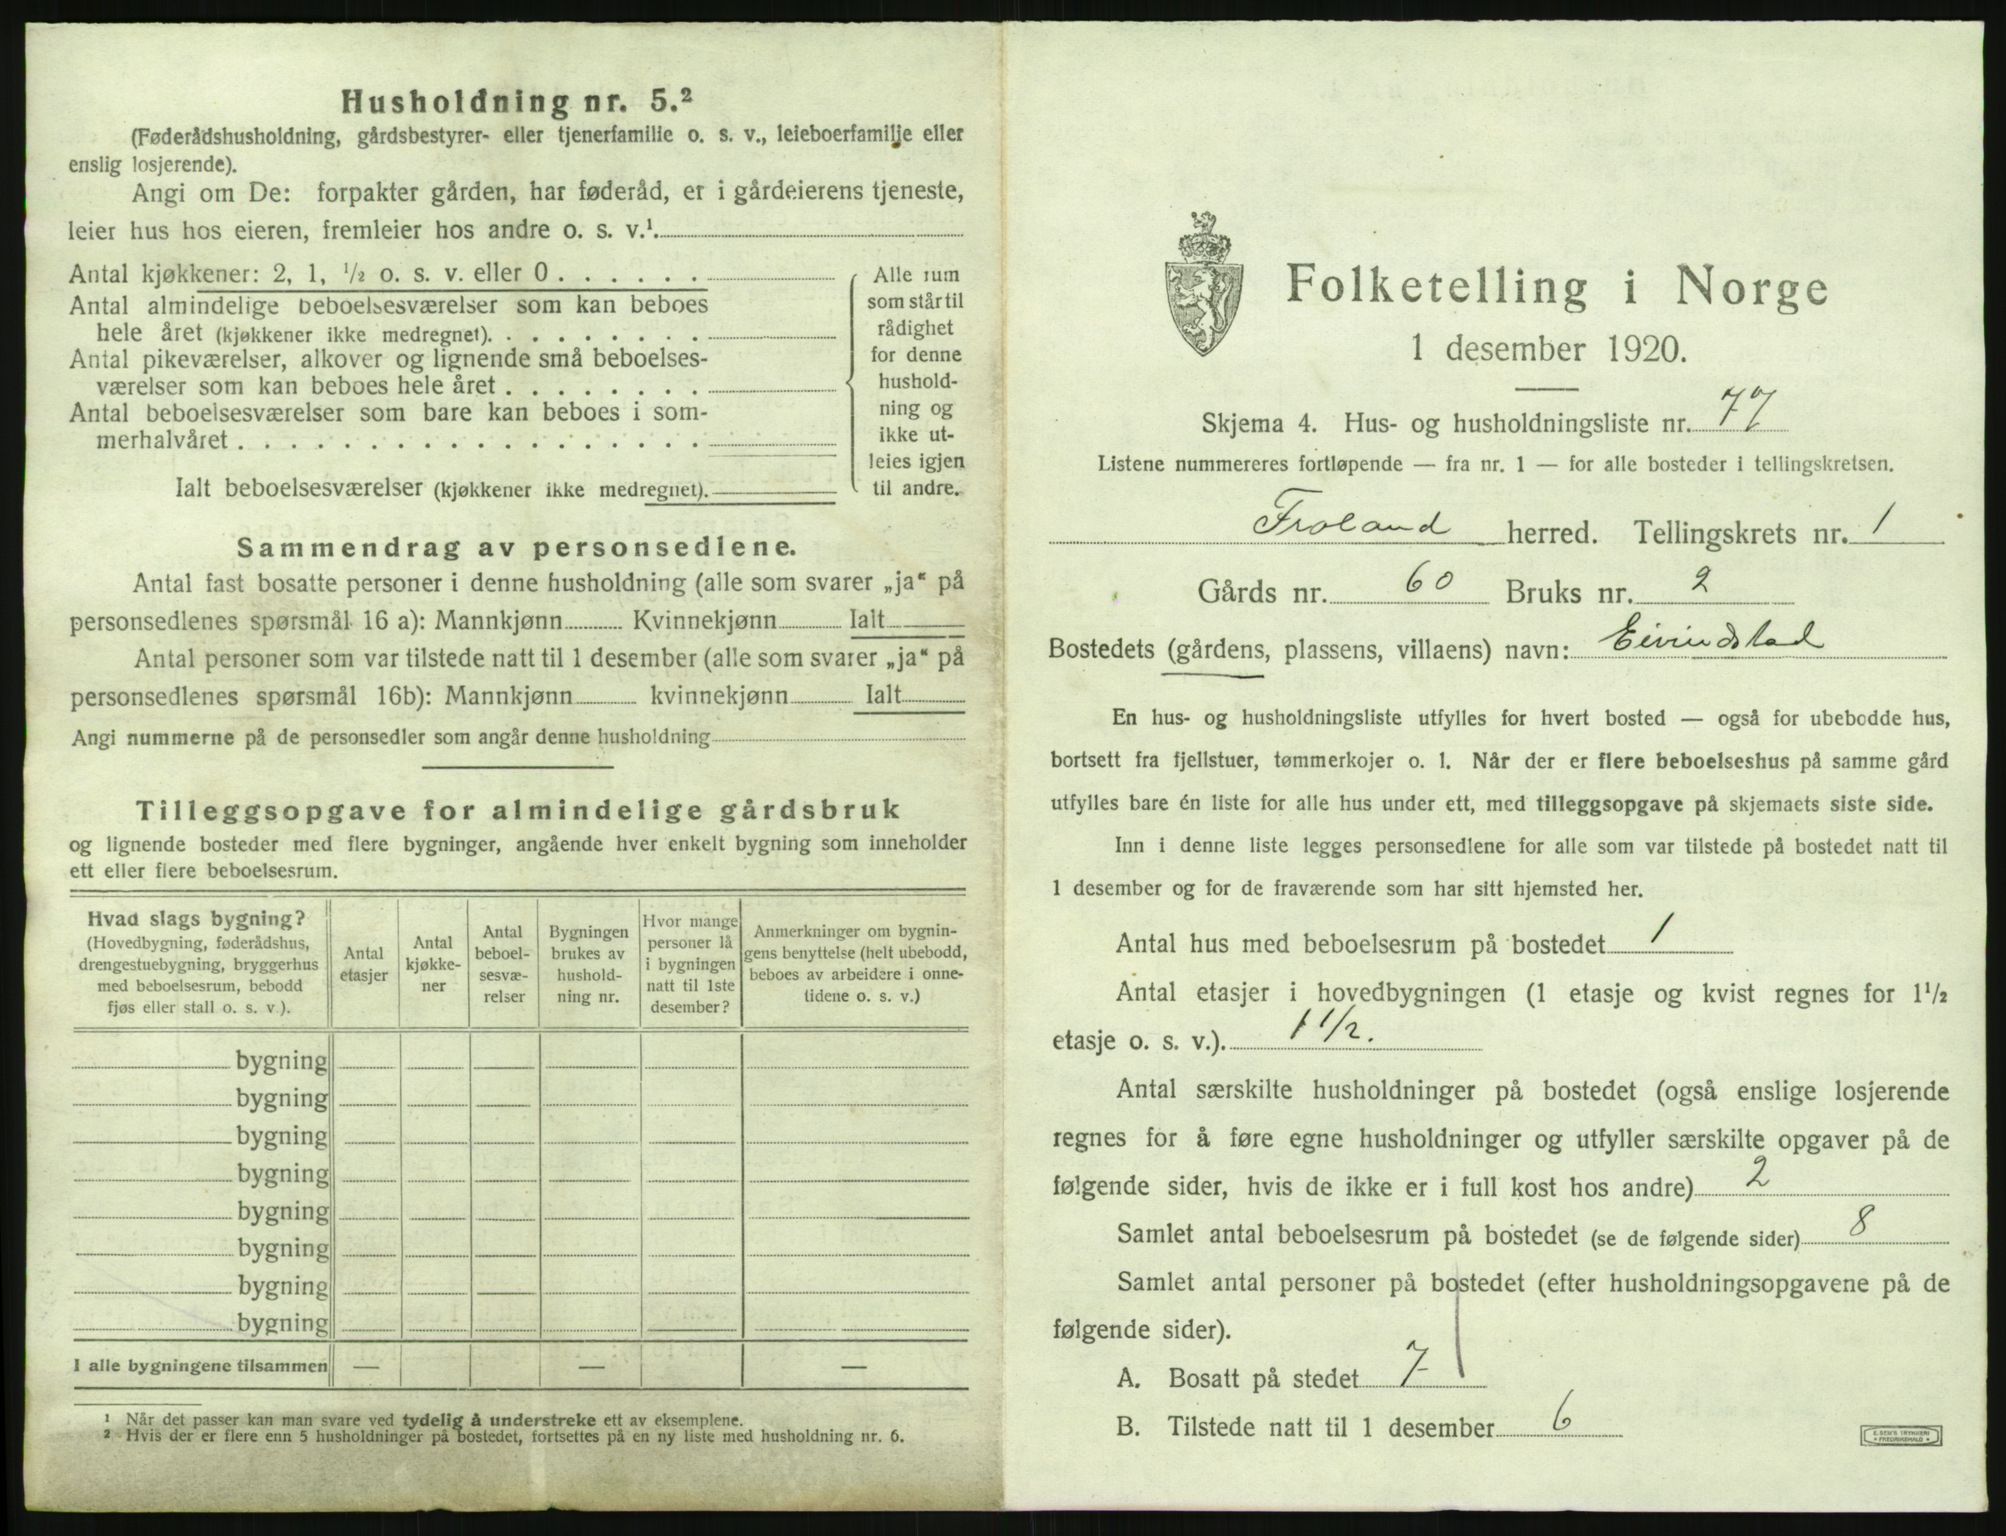 Husholdning nr. 5.²
(Føderådshusholdning, gårdsbestyrer- eller tjenerfamilie o. s. v., leieboerfamilje eller
enslig losjerende).
Angi om De: forpakter gården, har føderåd, er i gårdeierens tjeneste,
leier hus hos eieren, fremleier hos andre o. s. v.¹
Antal kjøkkener: 2, 1, ½ o. s. v. eller 0 . . . . . .
Antal almindelige beboelsesværelser som kan beboes
hele året (kjøkkener ikke medregnet). . . . . . . . .
Antal pikeværelser, alkover og lignende små beboelses-
værelser som kan beboes hele året . . . . . . . .
Antal beboelsesværelser som bare kan beboes i som-
merhalvåret . . . . . . . . . . . . . . . . . .
Ialt beboelsesværelser (kjøkkener ikke medregnet).
Alle rum
som står til
rådighet
for denne
hushold-
ning og
ikke ut-
leies igjen
til andre.
Sammendrag av personsedlene.
Antal fast bosatte personer i denne husholdning (alle som svarer „ja“ på
personsedlenes spørsmål 16 a): Mannkjønn Kvinnekjønn Ialt
Antal personer som var tilstede natt til 1 desember (alle som svarer „ja“ på
personsedlenes spørsmål 16b): Mannkjønn kvinnekjønn Ialt
Angi nummerne på de personsedler som angår denne husholdning
Tilleggsopgave for almindelige gårdsbruk
og lignende bosteder med flere bygninger, angående hver enkelt bygning som inneholder
ett eller flere beboelsesrum.
Hvad slags bygning?
(Hovedbygning, føderådshus,
drengestuebygning, bryggerhus
med beboelsesrum, bebodd
fjøs eller stall o. s. v.).
Antal
etasjer
Antal
kjøkke-
ner
Antal
beboel-
sesvæ-
relser
Bygningen
brukes av
hushold-
ning nr.
Hvor mange
personer lå
i bygningen
natt til 1ste
desember?
Anmerkninger om bygnin-
gens benyttelse (helt ubebodd,
beboes av arbeidere i onne-
tidene o. s. v.)
bygning
bygning
bygning
bygning
bygning
bygning
bygning
bygning
I alle bygningene tilsammen — — —
¹ Når det passer kan man svare ved tydelig å understreke ett av eksemplene.
² Hvis der er flere enn 5 husholdninger på bostedet, fortsettes på en ny liste med husholdning nr. 6.
Folketelling i Norge
1 desember 1920.
Skjema 4. Hus- og husholdningsliste nr. 77
Listene nummereres fortløpende — fra nr. 1 — for alle bosteder i tellingskretsen.
Froland herred. Tellingskrets nr. 1
Gårds nr. 60 Bruks nr. 2
Bostedets (gårdens, plassens, villaens) navn: Eivindstad
En hus- og husholdningsliste utfylles for hvert bosted — også for ubebodde hus,
bortsett fra fjellstuer, tømmerkojer o. l. Når der er flere beboelseshus på samme gård
utfylles bare én liste for alle hus under ett, med tilleggsopgave på skjemaets siste side.
Inn i denne liste legges personsedlene for alle som var tilstede på bostedet natt til
1 desember og for de fraværende som har sitt hjemsted her.
Antal hus med beboelsesrum på bostedet 1
Antal etasjer i hovedbygningen (1 etasje og kvist regnes for 1½
etasje o. s. v.). 1 1/2.
Antal særskilte husholdninger på bostedet (også enslige losjerende
regnes for å føre egne husholdninger og utfyller særskilte opgaver på de
følgende sider, hvis de ikke er i full kost hos andre) 2
Samlet antal beboelsesrum på bostedet (se de følgende sider) 8
Samlet antal personer på bostedet (efter husholdningsopgavene på de
følgende sider).
A. Bosatt på stedet 7
B. Tilstede natt til 1 desember 6
E. SEM'S TRYKKERI
• FREDRIKSHALD •